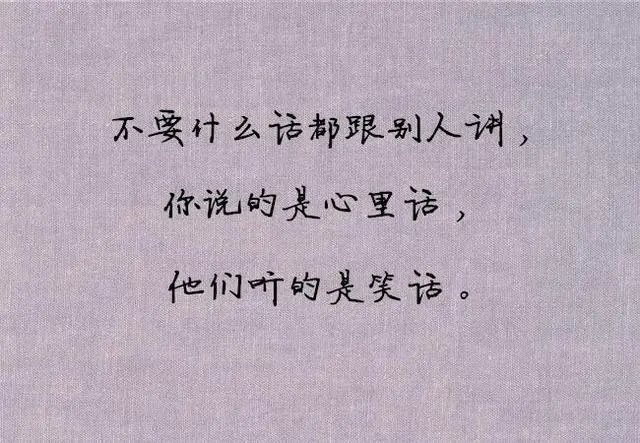 不要什么话都跟别人讲，
你说的是心里话，
他们听的是笑话。